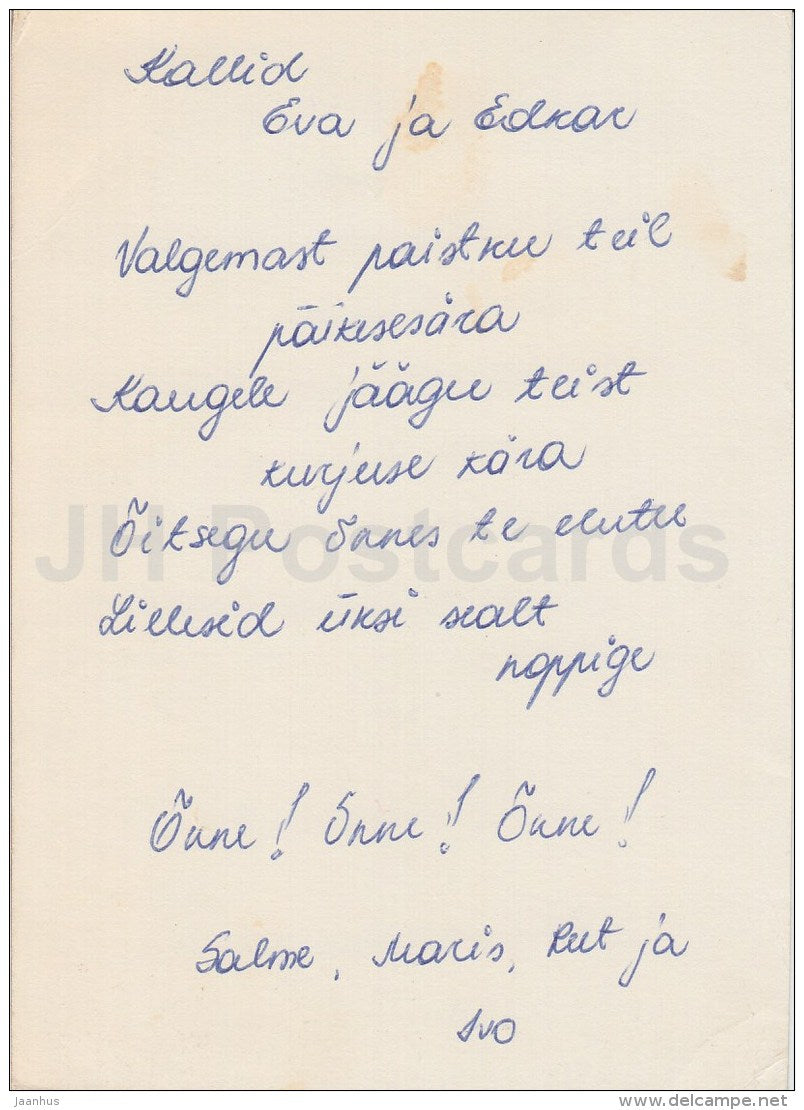 Kallid
Eva ja Edkar
Valgemast paistku teil
päikesesära
Kaugele jäägu teist
kurjuse kära
Õitsegu õnnes te elutee
Lillesid üksi sealt
noppige
Õnne! Õnne! Õnne!
Salme, Maris, Rut ja
Ivo
JH Postcards
Jaanhus
www.delcampe.net